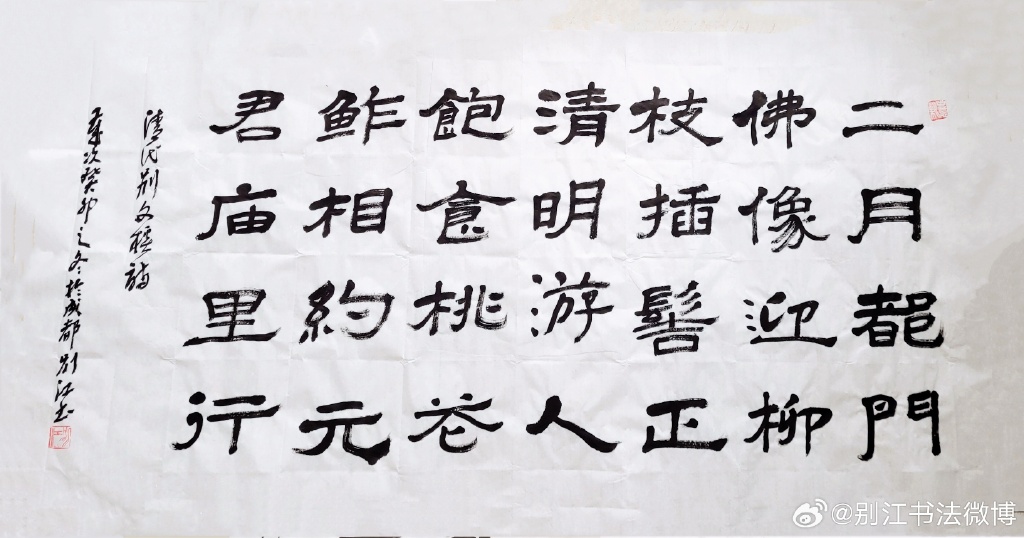 二月都門
佛像迎柳
枝插髻正
清明游人
飽食桃花
鮓相約元
君庙里行
清代别文詩
歲次癸卯之冬於成都别江书
@别江书法微博